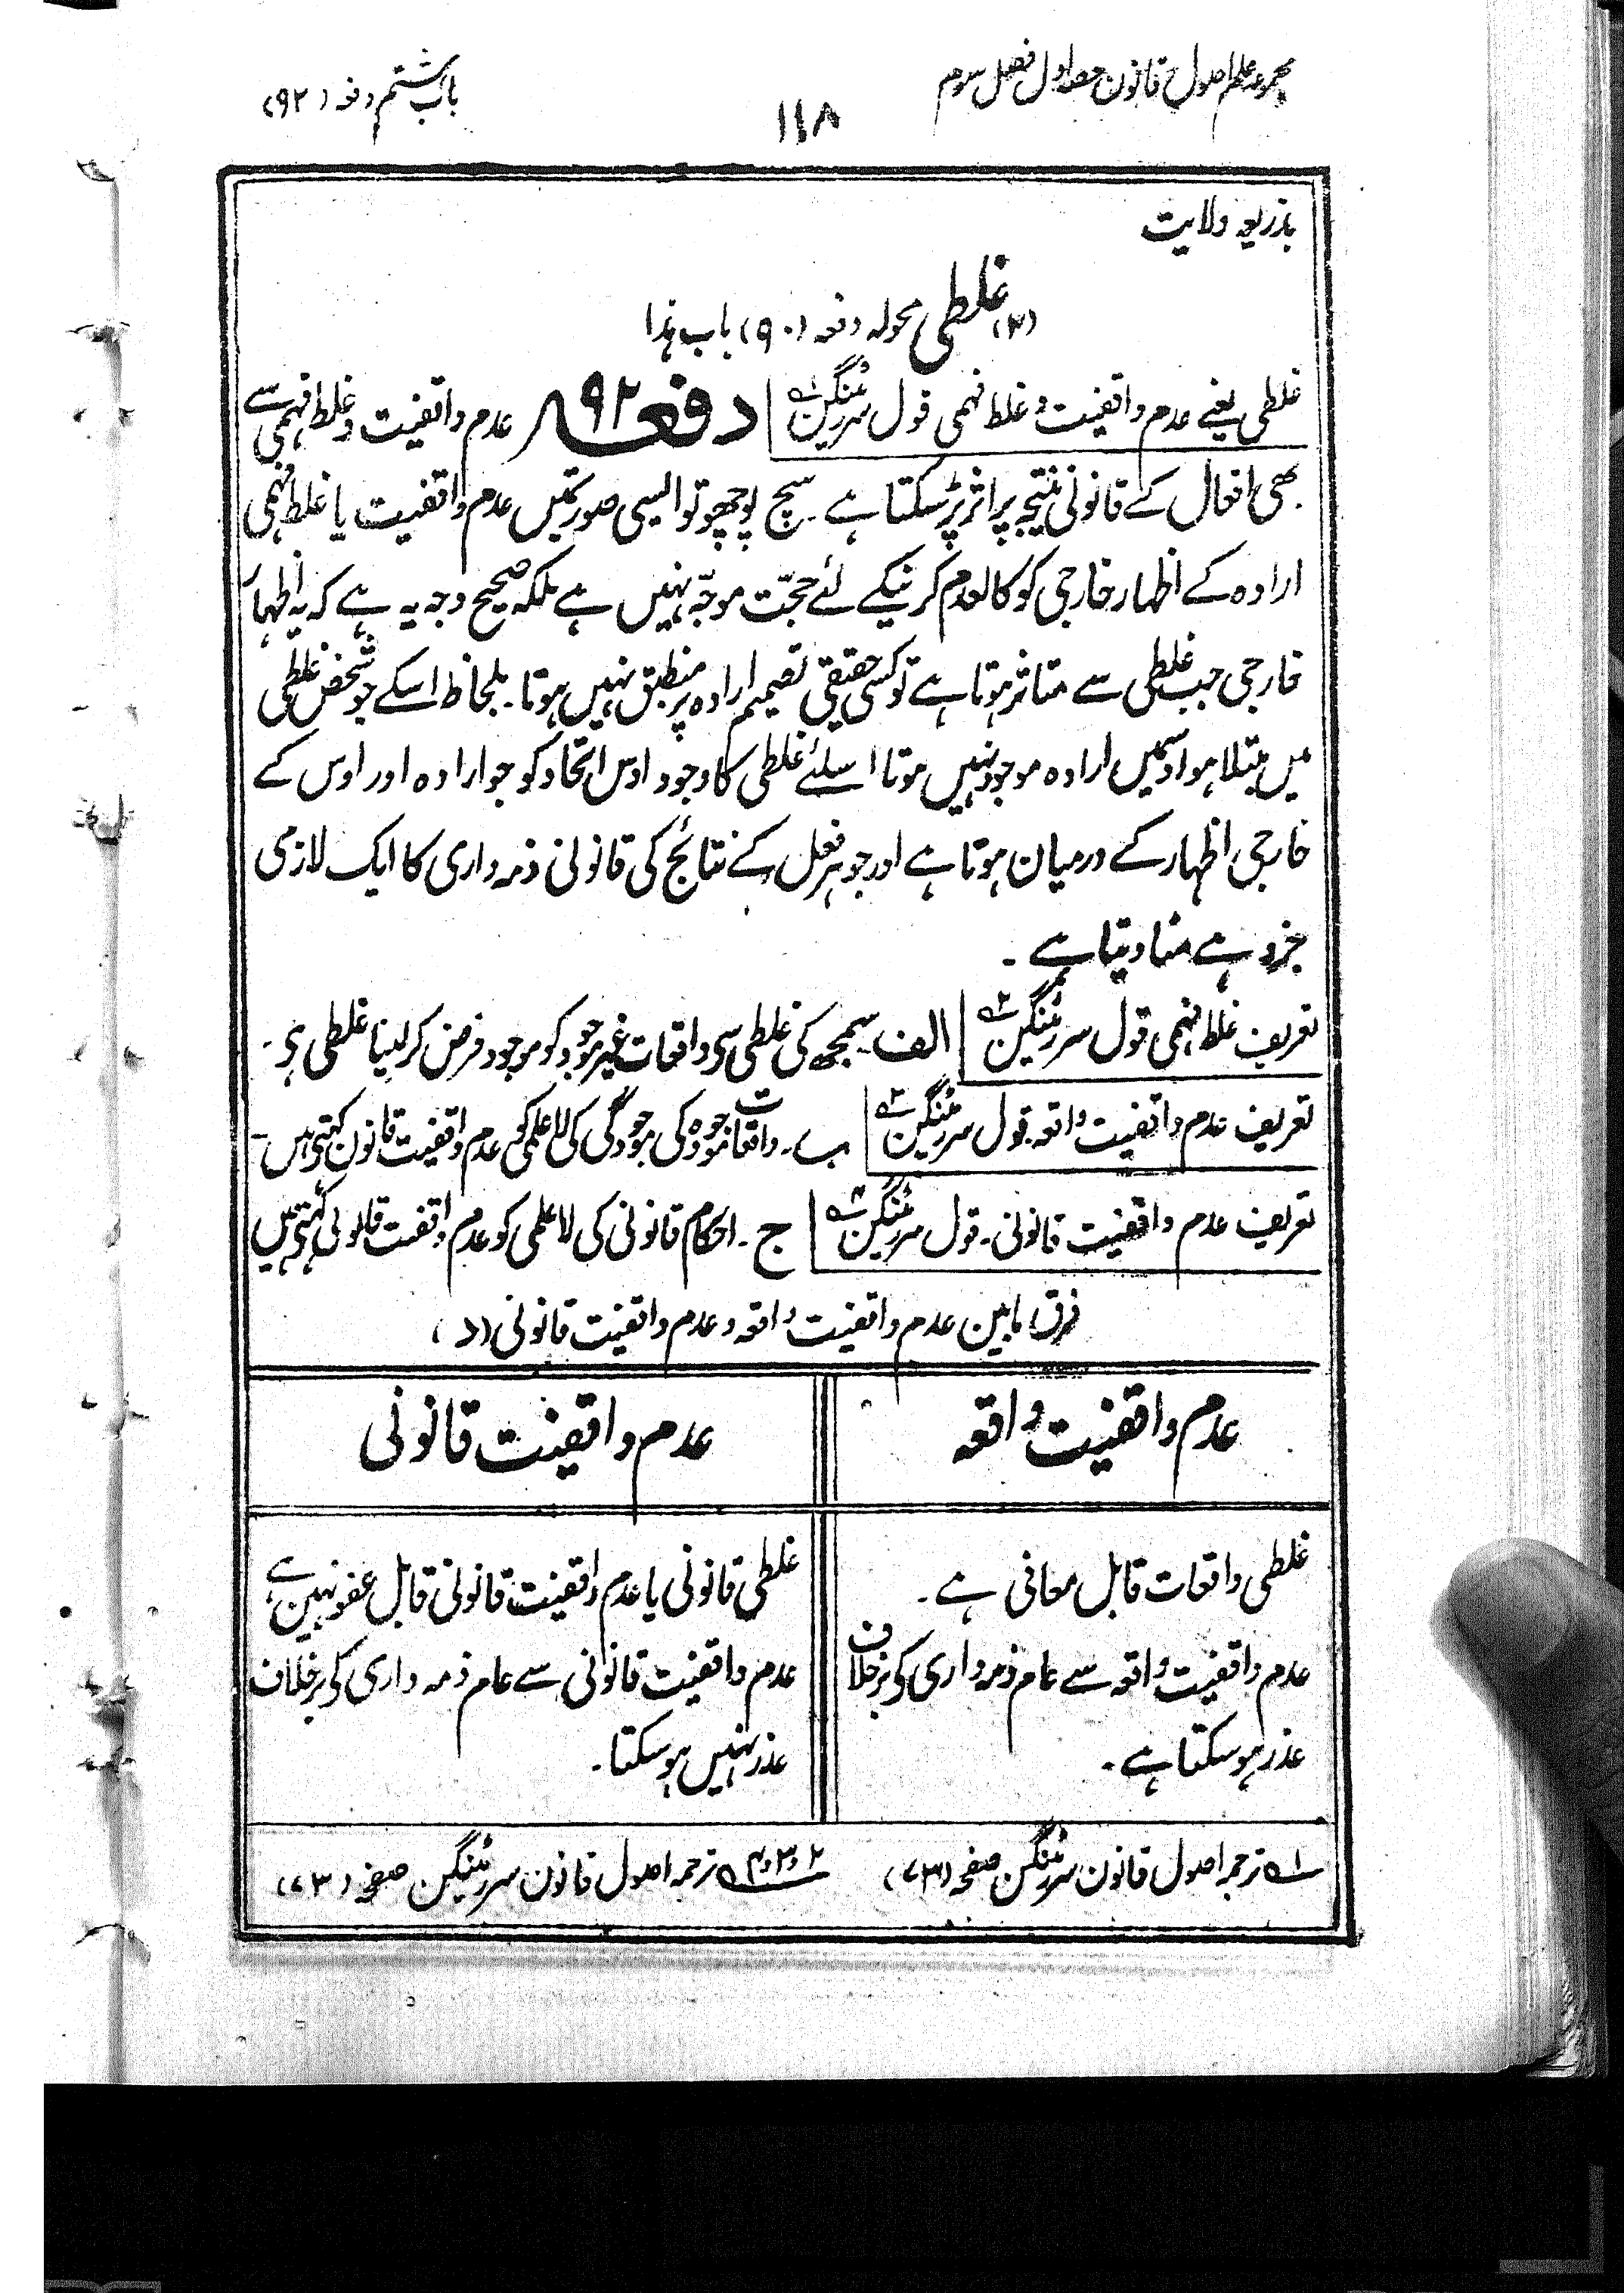 مجموعہ علم اصول قانون حصہ اول فصل سوم
۱۱۸
باب ہشتم دفعہ (۹۲)
بذریعہ ولایت
(۲) غلطی محولہ دفعہ (۹۰) باب ہذا
غلطی یعنے عدم واقفیت و غلط فہمی قول سر رٹنگین ۱؎
دفعہ ۹۲ عدم واقفیت و غلط فہمی سے
بھی افعال کے قانونی نتیجے پر اثر پڑ سکتا ہے ۔ سچ پوچھو تو ایسی صورتمیں عدم واقفیت یا غلط فہمی
ارادہ کے اظہار خارجی کو کالعدم کرنیکے لئے حجّت موجّہ نہیں ہے بلکہ صحیح وجہ یہ ہے کہ یہ اظہار
خارجی جب غلطی سے متاثر ہوتا ہے تو کسی حقیقی تصمیم ارادہ پر منطبق نہیں ہوتا ۔ بلحاظ اسکے جو شخص غلطی
میں مبتلا ہو اوسمیں ارادہ موجود نہیں ہوتا اسلئے غلطی کا وجود اوس اتحاد کو جو ارادہ اور اوس کے
خارجی اظہار کے درمیان ہوتا ہے اور جو ہر فعل کے نتائج کی قانونی ذمہ داری کا ایک لازمی
جزو ہے مٹا دیتا ہے ۔
تعریف غلط فہمی قول سر رٹنگین ۲؎
الف ۔ سمجھ کی غلطی سی واقعات غیر موجود کو موجود فرض کر لینا غلطی ہی ۔
تعریف عدم واقفیت واقعہ قول سر رٹنگین ۳؎
ب ۔ واقعات موجودہ کی موجودگی کی لا علمی کو عدم واقفیت قانون کہتی ہیں ۔
تعریف عدم واقفیت قانونی ۔ قول سر رٹنگین ۴؎
ج ۔ احکام قانونی کی لا علمی کو عدم واقفیت قانونی کہتی ہیں
فرق مابین عدم واقفیت واقعہ و عدم واقفیت قانونی (د)
عدم واقفیت واقعہ
عدم واقفیت قانونی
غلطی واقعات قابل معافی ہے ۔
عدم واقفیت واقعہ سے عام ذمہ داری کی برخلاف
عذر ہو سکتا ہے ۔
غلطی قانونی یا عدم واقفیت قانونی قابل عفو نہیں ہے
عدم واقفیت قانونی سے عام ذمہ داری کی برخلاف
عذر نہیں ہو سکتا ۔
۱؎ ترجمہ اصول قانون سر رٹنگین صفحہ (۷۳)
۲ و ۳ و ۴؎ ترجمہ اصول قانون سر رٹنگین صفحہ (۷۳)